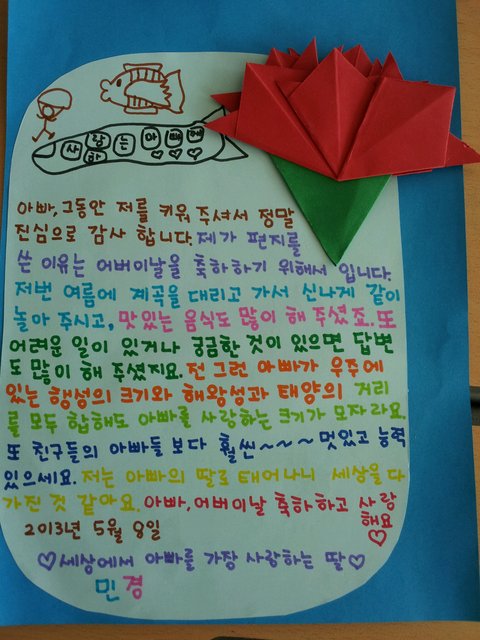 사랑하는 아빠께♡♡♡
아빠, 그동안 저를 키워 주셔서 정말
진심으로 감사 합니다. 제가 편지를
쓴 이유는 어버이날을 축하하기 위해서 입니다.
저번 여름에 계곡을 대리고 가서 신나게 같이
놀아 주시고, 맛있는 음식도 많이 해 주셨죠. 또
어려운 일이 있거나 궁금한 것이 있으면 답변
도 많이 해 주셨지요. 전 그런 아빠가 우주에
있는 행성의 크기와 해왕성과 태양의 거리
를 모두 합해도 아빠를 사랑하는 크기가 모자라요.
또 친구들의 아빠들 보다 훨씬~~~ 멋있고 능력
있으세요. 저는 아빠의 딸로 태어나니 세상을 다
가진 것 같아요. 아빠, 어버이날 축하하고 사랑
해요
♡
2013년 5월 8일
♡세상에서 아빠를 가장 사랑하는 딸♡
민경